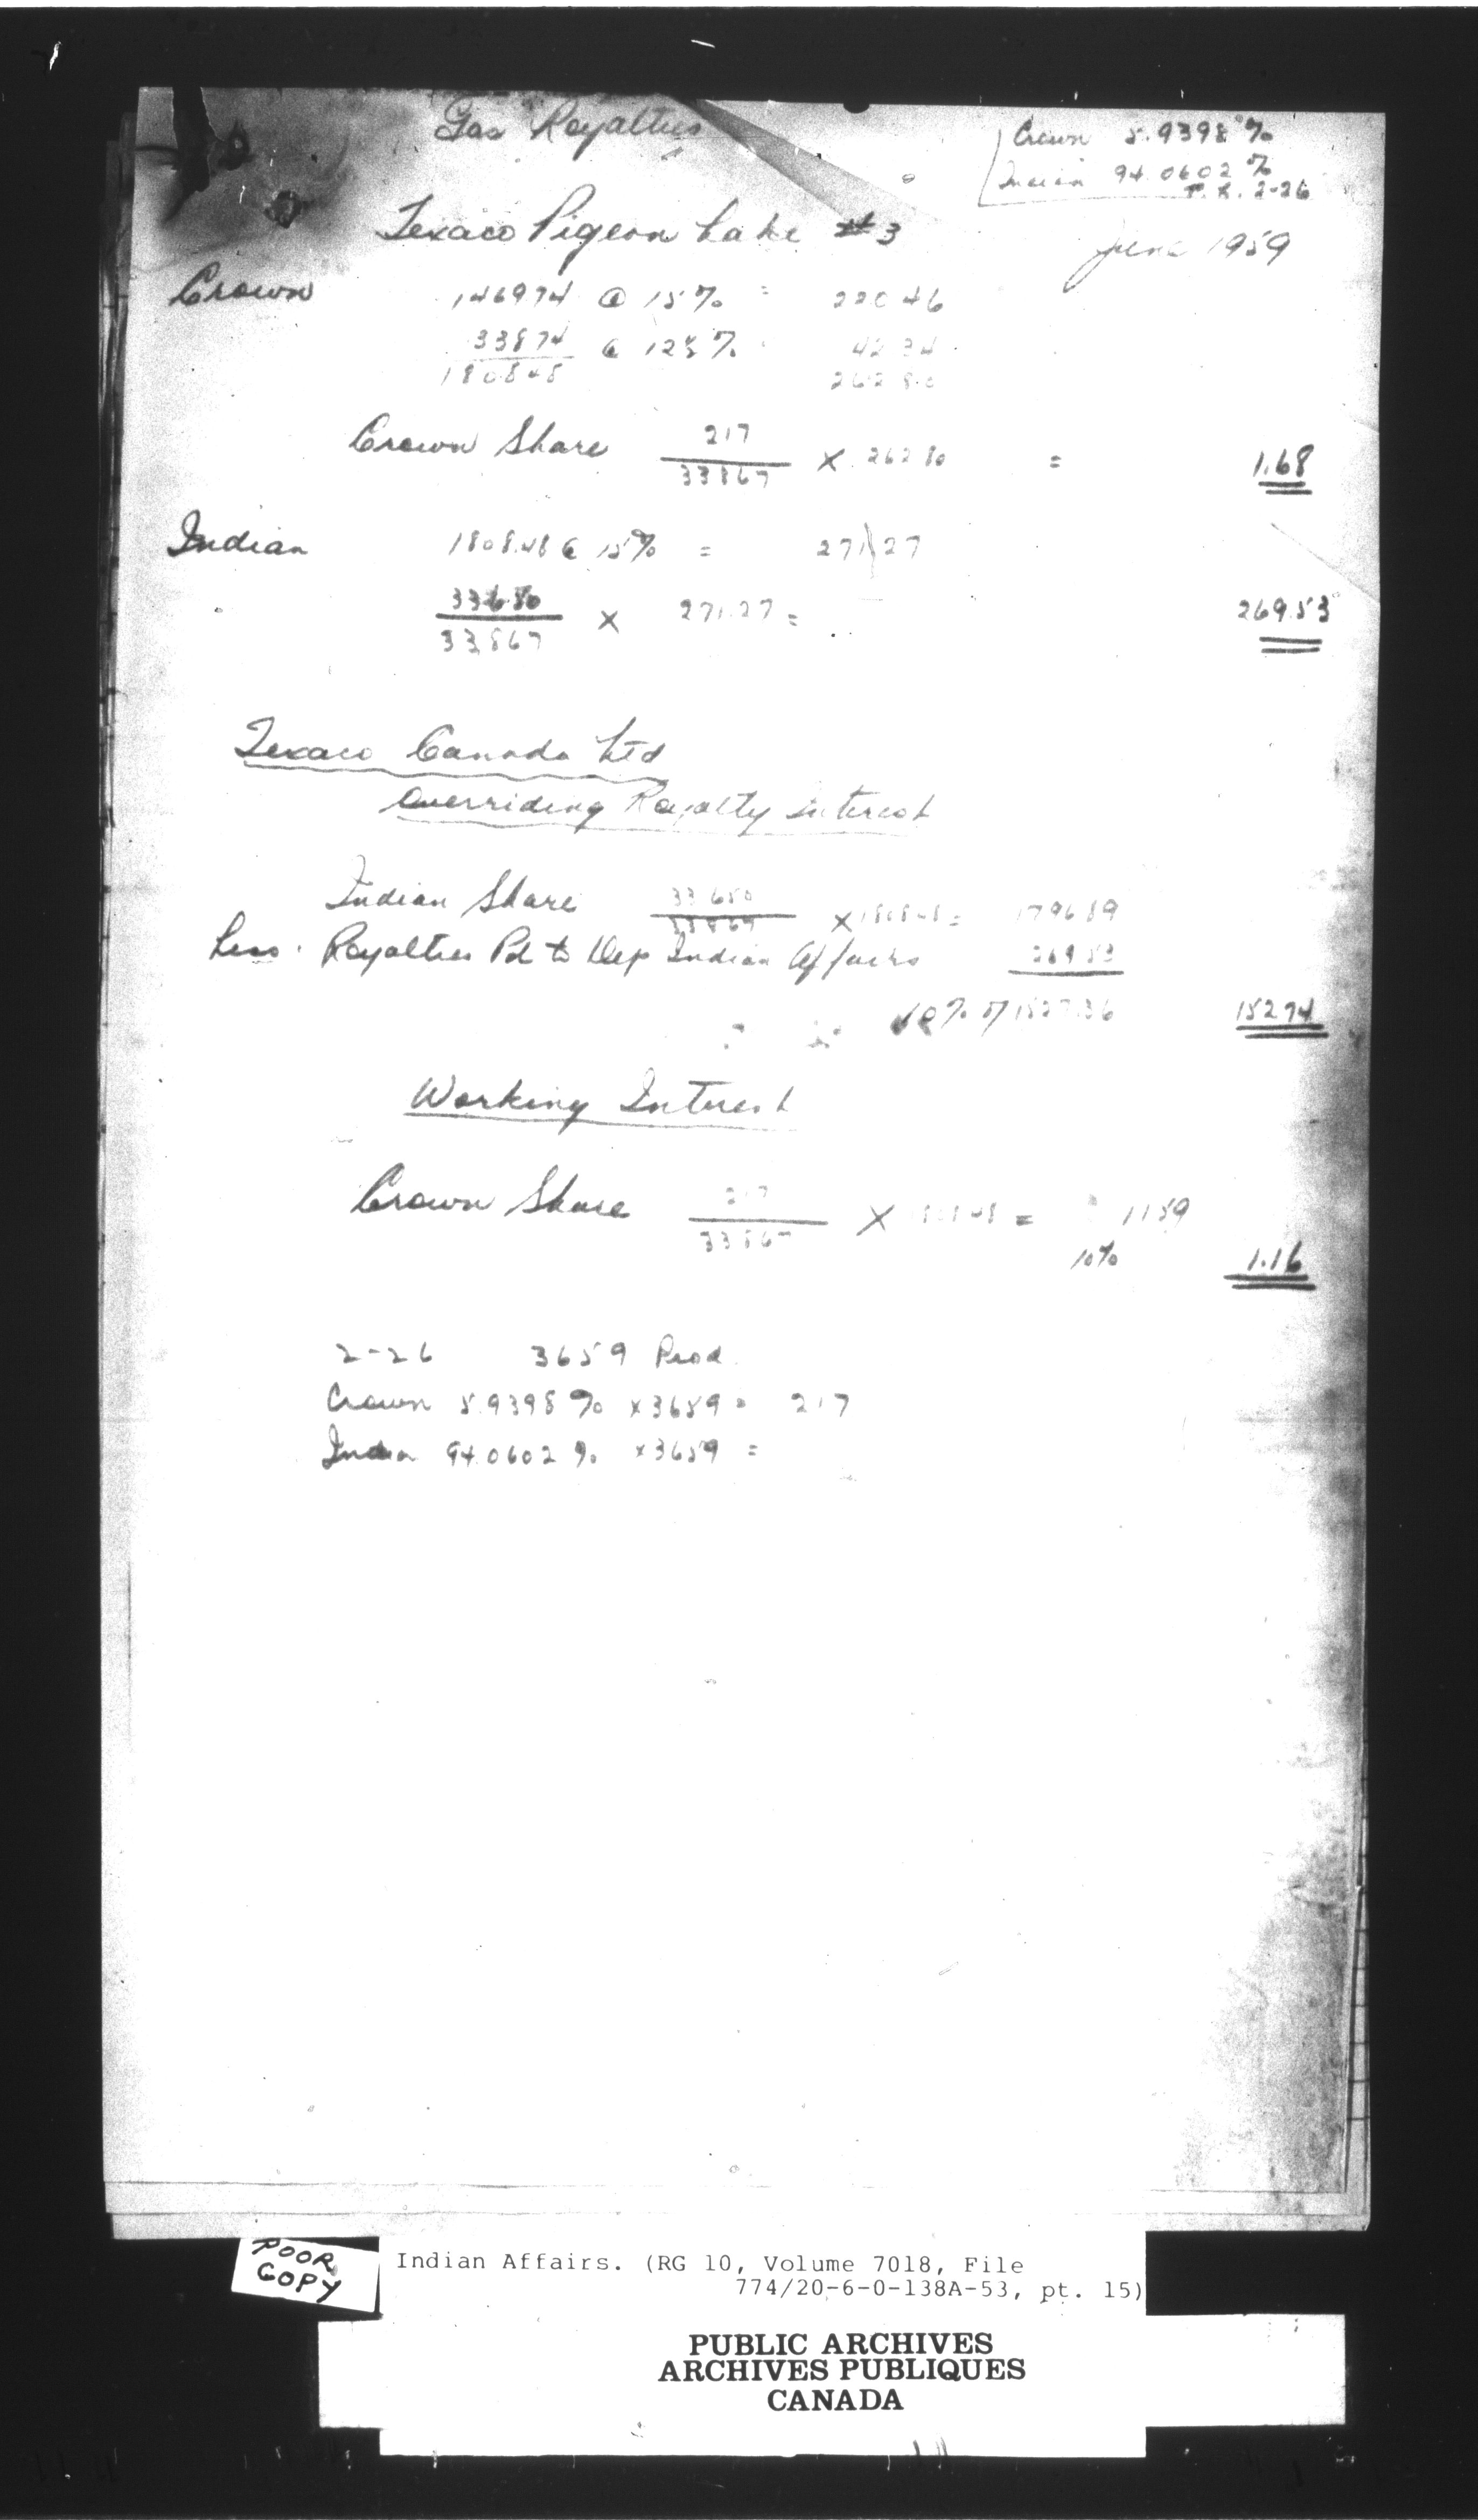 Gas Royalties
Crown 5.9398%
Indian 94.0602%
P.L. 2-26
Texaco Pigeon Lake #3
June 1959
Crown 146974 @ 15% = 22046
33874 @ 12½% 4234
180848 26280
Crown Share 217 / 33867 × 26280 = 1.68
Indian 1808.48 @ 15% = 271 27
33650 / 33867 × 271.27 = 269.53
Texaco Canada Ltd
Overriding Royalty Interest
Indian Share 33650 / 33867 × 180848 = 179689
Less. Royalties Pd to Dep Indian Affairs 26953
10% of 1527.36 152 74
Working Interest
Crown Share 217 / 33867 × 180848 = 1159
10% 1.16
2-26 3659 Prod.
Crown 5.9398% × 3659 = 217
India 94.0602% × 3659 =
POOR
COPY
Indian Affairs. (RG 10, Volume 7018, File
774/20-6-0-138A-53, pt. 15)
PUBLIC ARCHIVES
ARCHIVES PUBLIQUES
CANADA